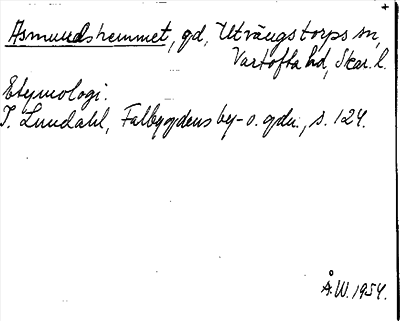 +
Asmundshemmet, gd, Utvängstorps sn,
Vartofta hd, Skar. l.
Etymologi.
I. Lundahl, Falbygdens by- o. gdn., s. 124.
Å.W. 1954.